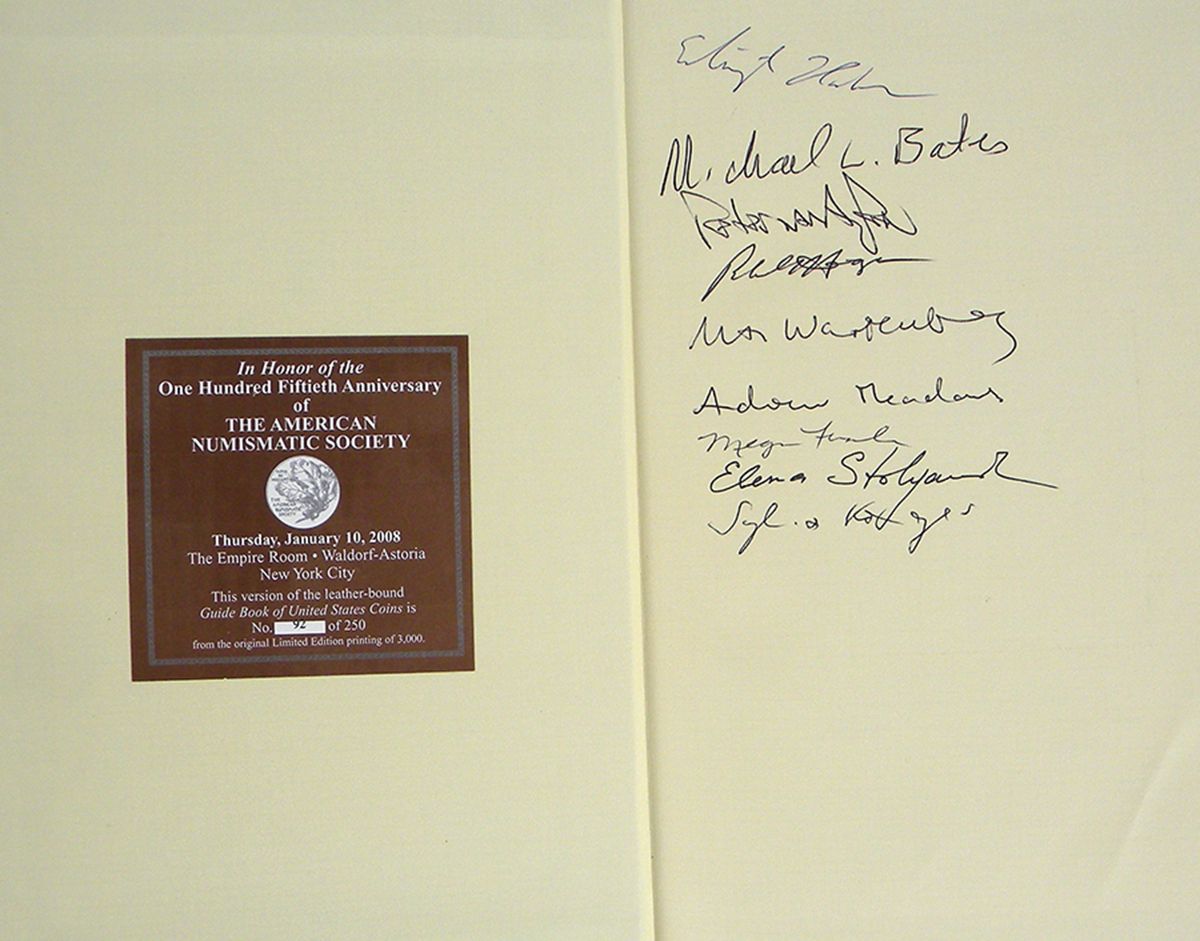 In Honor of the
One Hundred Fiftieth Anniversary
of
THE AMERICAN
NUMISMATIC SOCIETY
THE
AMERICAN
NUMISMATIC
SOCIETY
Thursday, January 10, 2008
The Empire Room • Waldorf-Astoria
New York City
This version of the leather-bound
Guide Book of United States Coins is
No. 92 of 250
from the original Limited Edition printing of 3,000.
Michael L. Bates
Peter van Alfen
Ute Wartenberg
Andrew Meadows
Elena Stolyarik